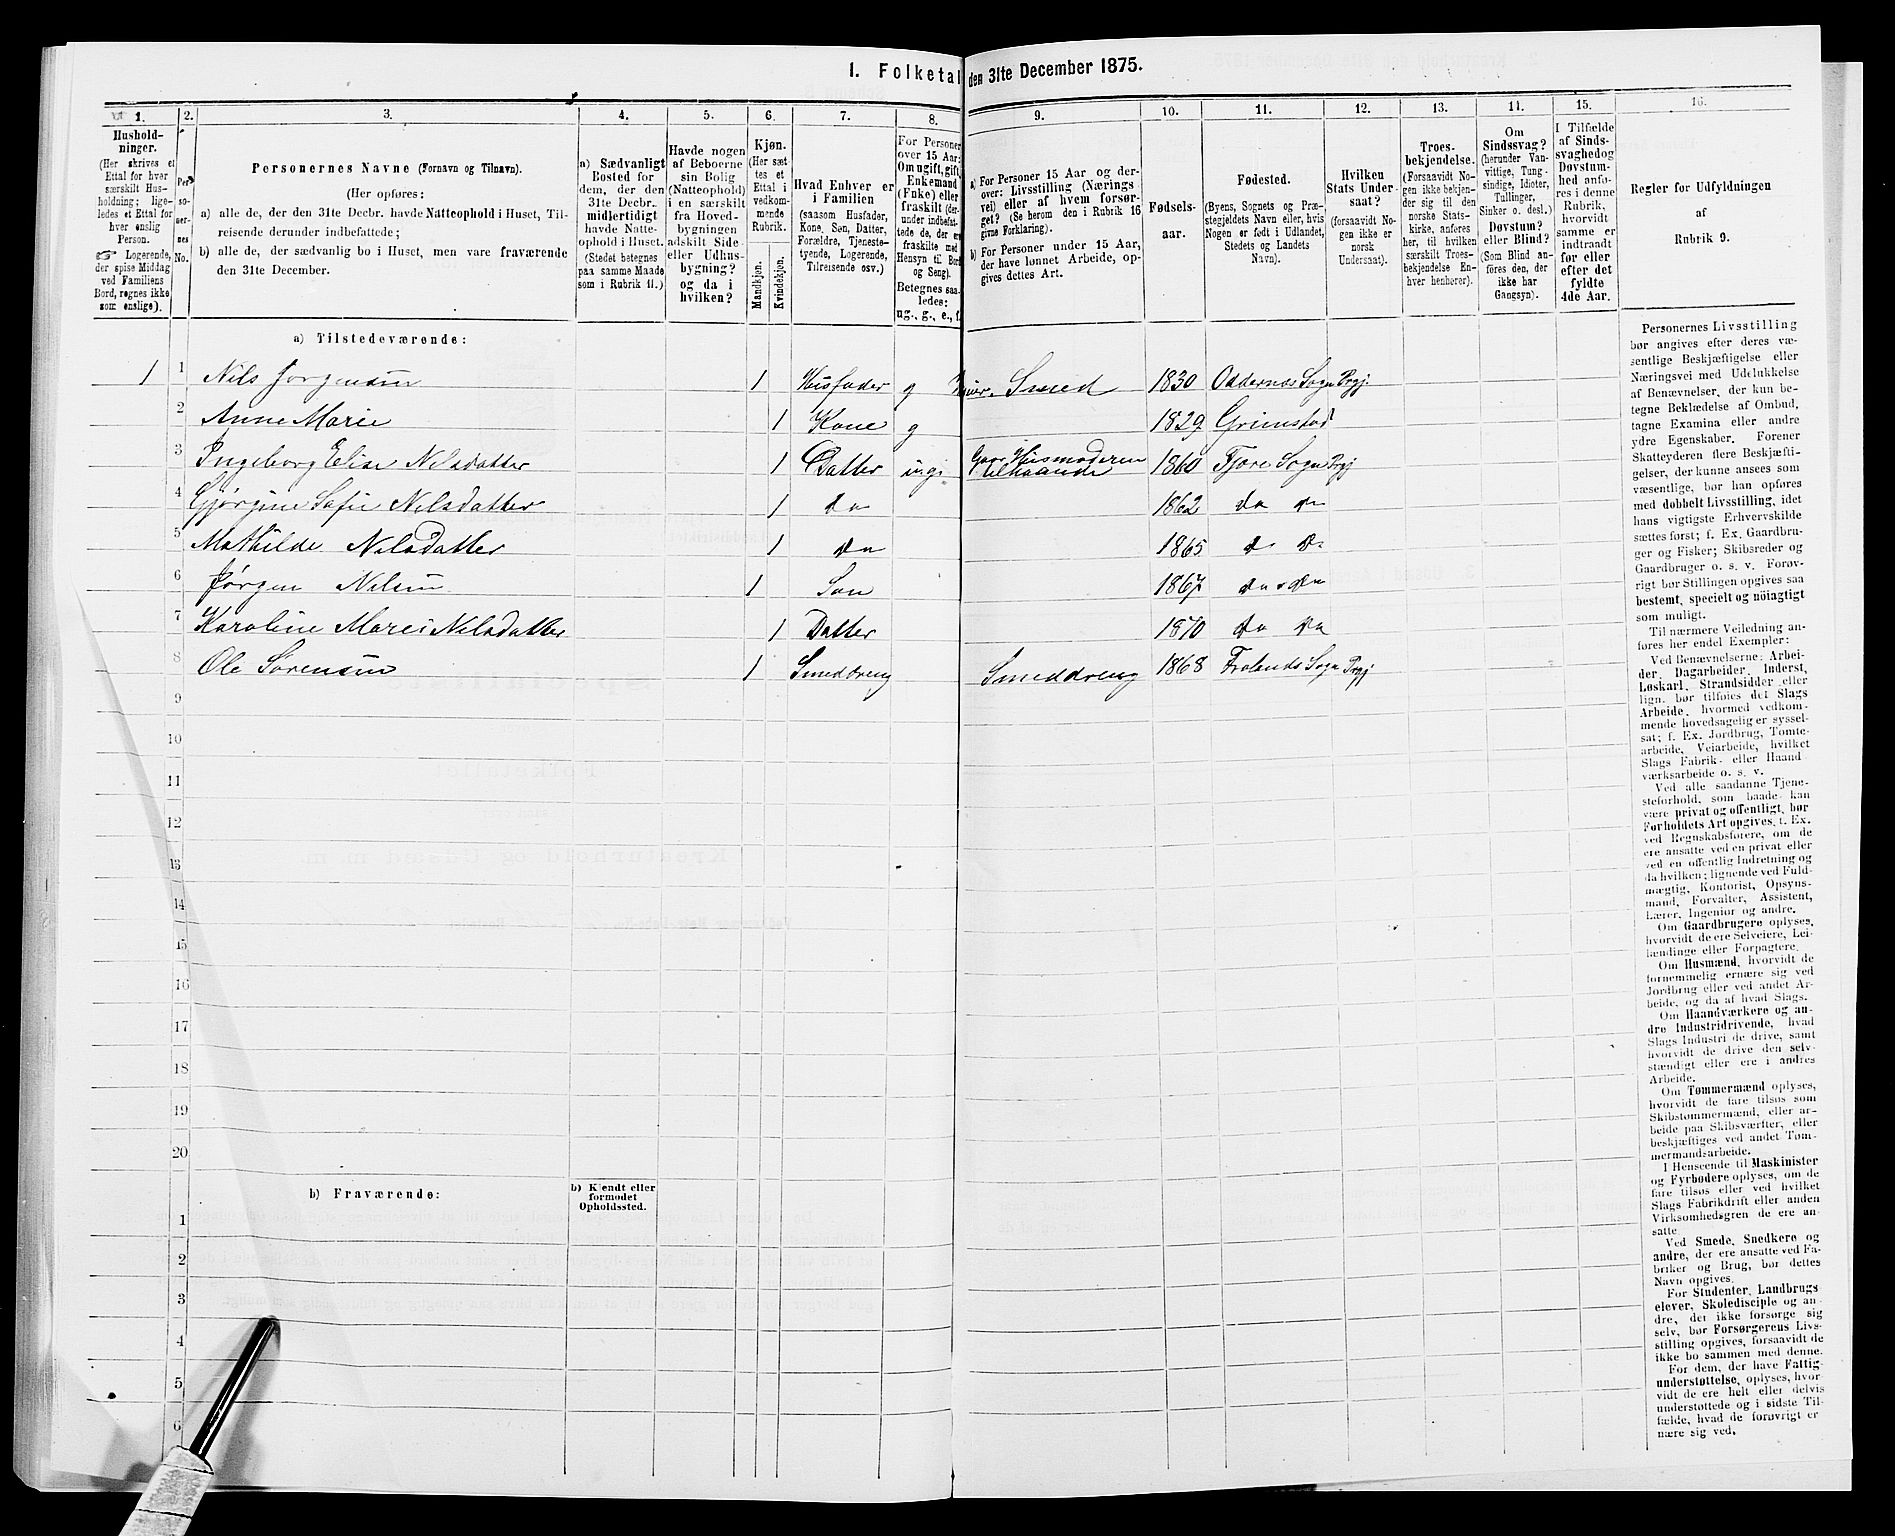 1. Folketal den 31te December 1875.
1.
2.
3.
4.
5.
6.
7.
8.
9.
10.
11.
12.
13.
14.
15.
16.
Husholdninger.
(Her skrives et Ettal for hver særskilt Husholdning; ligeledes et Ettal for hver enslig Person.
☞ Logerende, der spise Middag ved Familiens Bord, regnes ikke som enslige).
Personernes No.
Personernes Navne (Fornavn og Tilnavn).
(Her opføres:
a) alle de, der den 31te Decbr. havde Natteophold i Huset, Tilreisende derunder indbefattede;
b) alle de, der sædvanlig bo i Huset, men vare fraværende den 31te December.
a) Sædvanligt Bosted for dem, der den 31te Decbr. midlertidigt havde Natteophold i Huset. (Stedet betegnes paa samme Maade som i Rubrik 11.)
Havde nogen af Beboerne sin Bolig (Natteophold) i en særskilt fra Hovedbygningen adskilt Side- eller Udhusbygning? og da i hvilken?
Kjøn.
(Her sættes et Ettal i vedkommende Rubrik.
Mandkjøn.
Kvindekjøn.
Hvad Enhver er i Familien
(saasom Husfader, Kone, Søn, Datter, Forældre, Tjenestetyende, Logerende, Tilreisende osv.)
For Personer over 15 Aar: Om ugift, gift, Enkemand (Enke) eller fraskilt
Betegnes saaledes: ug., g., e., f.
a) For Personer 15 Aar og derover: Livsstilling (Næringsvei) eller af hvem forsørget? (Se herom den i Rubrik 16 givne Forklaring).
b) For Personer under 15 Aar, der have lønnet Arbeide, opgives dettes Art.
Fødselsaar.
Fødested.
(Byens, Sognets og Præstegjeldets Navn eller, hvis Nogen er født i Udlandet, Stedets og Landets Navn).
Hvilken Stats Undersaat?
(forsaavidt Nogen ikke er norsk Undersaat).
Troesbekjendelse.
(Forsaavidt Nogen ikke bekjender sig til den norske Statskirke, anføres her, til hvilken særskilt Troesbekjendelse Enhver henhører).
Om Sindssvag?
(herunder Vanvittige, Tungsindige, Idioter, Tullinger, Sinker o. desl.)
Døvstum? eller Blind?
(Som Blind anføres den, der ikke har Gangsyn).
I Tilfælde af Sindssvaghed og Døvstumhed anføres i denne Rubrik, hvorvidt samme er indtraadt før eller efter det fyldte 4de Aar.
Regler for Udfyldningen
af
Rubrik 9.
a) Tilstedeværende:
1 1 Nils Jorgensen 1 Husfader g Smed 1830 Oddernes Sogn Prgj.
2 Anne Marie 1 Kone g 1829 Grimstad
3 Ingeborg Elise Nilsdatter 1 Datter ug. Gaar Husmoderen tilhaande 1860 Fjære Sogn Prgj
4 Gjørgine Sofie Nilsdatter 1 do 1862 do do
5 Mathilde Nilsdatter 1 do 1865 do do
6 Jørgen Nilsen 1 Søn 1867 do do
7 Karoline Marei Nilsdatter 1 Datter 1870 do do
8 Ole Sørensen 1 Smeddreng Smeddreng 1868 Frolands Sogn Prgj
9
10
11
12
13
14
15
16
17
18
19
20
b) Fraværende:
b) Kjendt eller formodet Opholdssted.
1
2
3
4
5
6
Personernes Livsstilling
bør angives efter deres væ-
sentlige Beskjæftigelse eller
Næringsvei med Udelukkelse
af Benævnelser, der kun be-
tegne Beklædelse af Ombud,
tagne Examina eller andre
ydre Egenskaber. Forener
Skatteyderen flere Beskjæfti-
gelser, der kunne ansees som
væsentlige, bør han opføres
med dobbelt Livsstilling, idet
hans vigtigste Erhvervskilde
sættes først; f. Ex. Gaardbru-
ger og Fisker; Skibsreder og
Gaardbruger o. s. v. Forøv-
rigt bør Stillingen opgives saa
bestemt, specielt og nöiagtigt
som muligt.
Til nærmere Veiledning an-
føres her endel Exempler:
Ved Benævnelserne: Arbei-
der, Dagarbeider, Inderst,
Løskarl, Strandsidder eller
lign. bør tilføies det Slags
Arbeide, hvormed vedkom-
mende hovedsagelig er syssel-
sat; f. Ex. Jordbrug, Tomte-
arbeide, Veiarbeide, hvilket
Slags Fabrik- eller Haand-
værksarbeide o. s. v.
Ved alle saadanne Tjene-
steforhold, som baade kan
være privat og offentligt, bør
Forholdets Art opgives, t. Ex.
ved Regnskabsførere, om de
ere ansatte ved en privat eller
ved en offentlig Indretning og
da hvilken; lignende ved Fuld-
mægtig, Kontorist, Opsyns-
mand, Forvalter, Assistent,
Lærer, Ingeniør og andre.
Om Gaardbrugere oplyses,
hvorvidt de ere Selveiere, Lei-
lændinge eller Forpagtere.
Om Husmænd, hvorvidt de
fornemmelig ernære sig ved
Jordbrug eller ved andet Ar-
beide, og da af hvad Slags.
Om Haandværkere og an-
dre Industridrivende, hvad
Slags Industri de drive, samt
hvorvidt de drive den selv-
stændigt eller ere i andres
Arbeide.
Om Tømmermænd oplyses,
hvorvidt de fare tilsøs som
Skibstømmermænd, eller ar-
beide paa Skibsværfter, eller
beskjæftiges ved andet Tøm-
mermandsarbeide.
I Henseende til Maskinister
og Fyrbødere oplyses, om de
fare tilsøs eller ved hvilket
Slags Fabrikdrift eller anden
Virksomhedsgren de ere an-
satte
Ved Smede, Snedkere og
andre, der ere ansatte ved Fa-
briker og Brug, bør dettes
Navn opgives.
For Studenter, Landbrugs-
elever, Skoledisciple og an-
dre, der ikke forsørge sig
selv, bør Forsørgerens Livs-
stilling opgives, forsaavidt de
ikke bo sammen med denne.
For dem, der have Fattig-
understøttelse, oplyses, hvor-
vidt de ere helt eller delvis
understøttede og i sidste Til-
fælde, hvad de forøvrigt er
nære sig ved.